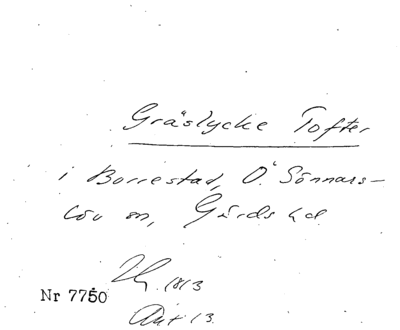 Gräslycke Tofter
i Borrestad, Ö. Sönnars-
löv sn, Gärds hd
1813
Nr 7750
Akt 13.